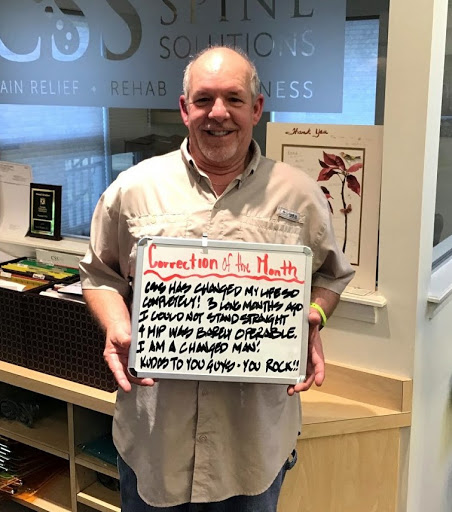 CSS SPINE
SOLUTIONS
AIN RELIEF + REHAB NESS
Thank You
Correction of the Month
CSS HAS CHANGED MY LIFE SO
COMPLETELY! 3 LONG MONTHS AGO
I COULD NOT STAND STRAIGHT
& HIP WAS BARELY OPERABLE.
I AM A CHANGED MAN!
KUDOS TO YOU GUYS - YOU ROCK!!